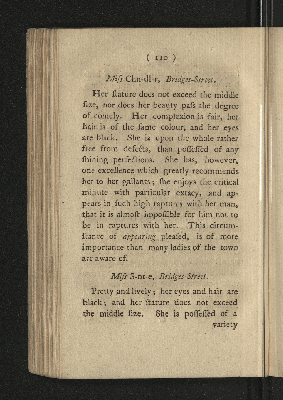 ( 110 )
Miſſ Chn-dl-r, Bridges-Street.
Her ſtature does not exceed the middle
ſize, nor does her beauty paſs the degree
of comely. Her complexion is fair, her
hair is of the ſame colour, and her eyes
are black. She is upon the whole rather
free from defects, than poſſeſſed of any
ſhining perfections. She has, however,
one excellence which greatly recommends
her to her gallants; ſhe enjoys the critical
minute with particular extacy, and ap-
pears in ſuch high raptures with her man,
that it is almoſt impoſſible for him not to
be in raptures with her. This circum-
ſtance of appearing pleaſed, is of more
importance than many ladies of the town
are aware of.
Miſſ S-m-e, Bridges-Street.
Pretty and lively; her eyes and hair are
black; and her ſtature does not exceed
the middle ſize. She is poſſeſſed of a
variety